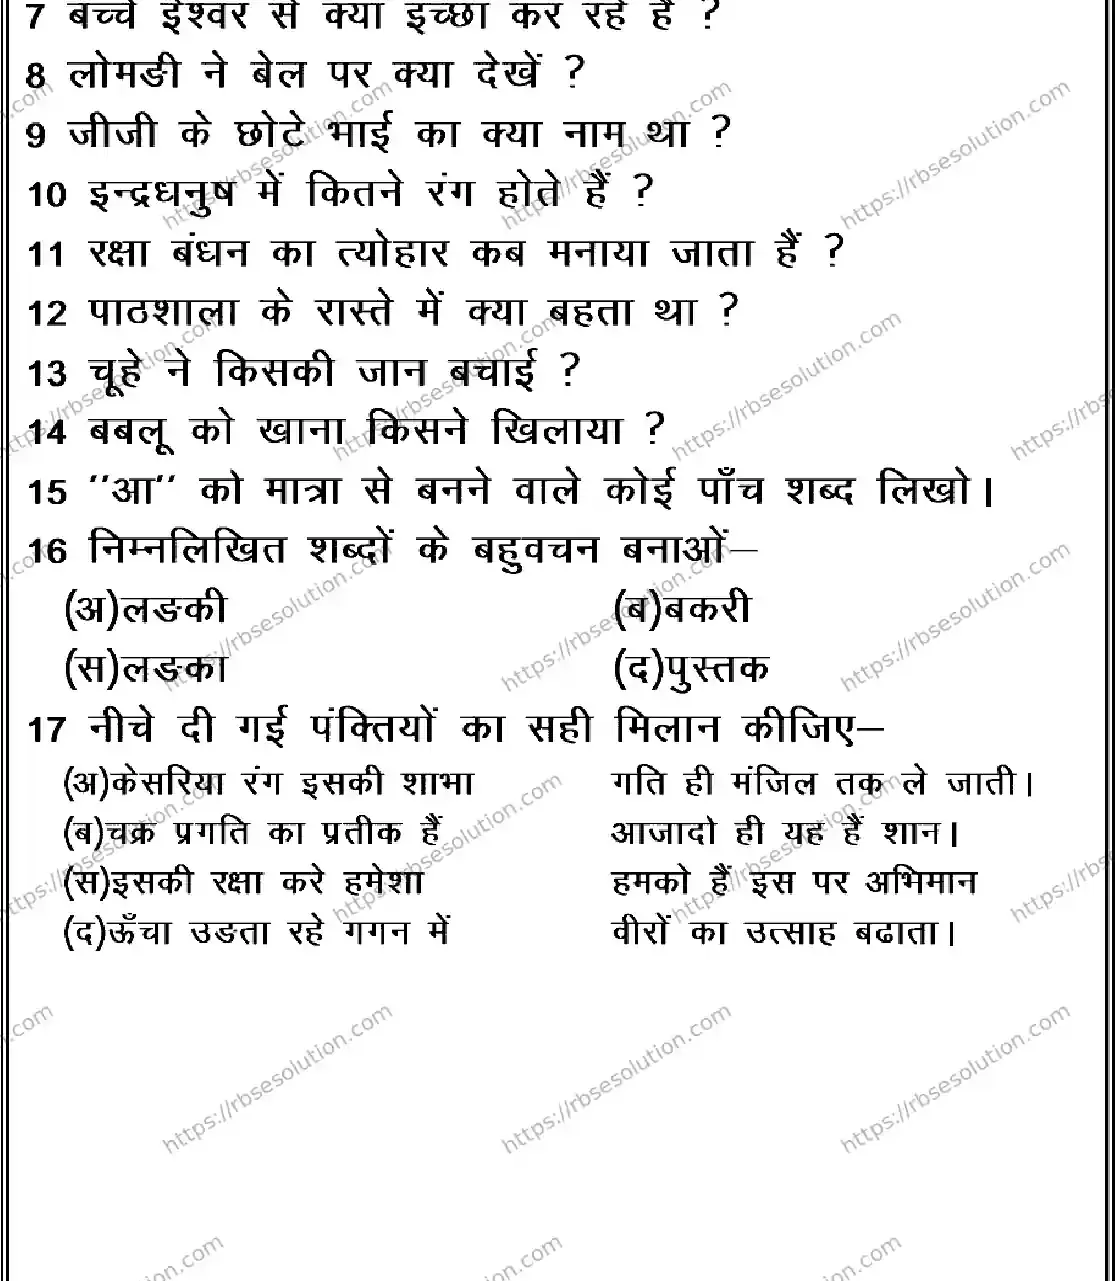 7 बच्चे ईश्वर से क्या इच्छा कर रहे हैं ?
8 लोमङी ने बेल पर क्या देखें ?
9 जीजी के छोटे भाई का क्या नाम था ?
10 इन्द्रधनुष में कितने रंग होते हैं ?
11 रक्षा बंधन का त्योहार कब मनाया जाता हैं ?
12 पाठशाला के रास्ते में क्या बहता था ?
13 चूहे ने किसकी जान बचाई ?
14 बबलू को खाना किसने खिलाया ?
15 ''आ'' को मात्रा से बनने वाले कोई पाँच शब्द लिखो।
16 निम्नलिखित शब्दों के बहुवचन बनाओं–
(अ)लङकी (ब)बकरी
(स)लङका (द)पुस्तक
17 नीचे दी गई पंक्तियों का सही मिलान कीजिए–
(अ)केसरिया रंग इसकी शाभा गति ही मंजिल तक ले जाती।
(ब)चक्र प्रगति का प्रतीक हैं आजादो ही यह हैं शान।
(स)इसकी रक्षा करे हमेशा हमको हैं इस पर अभिमान
(द)ऊँचा उङता रहे गगन में वीरों का उत्साह बढाता।
https://rbsesolution.com